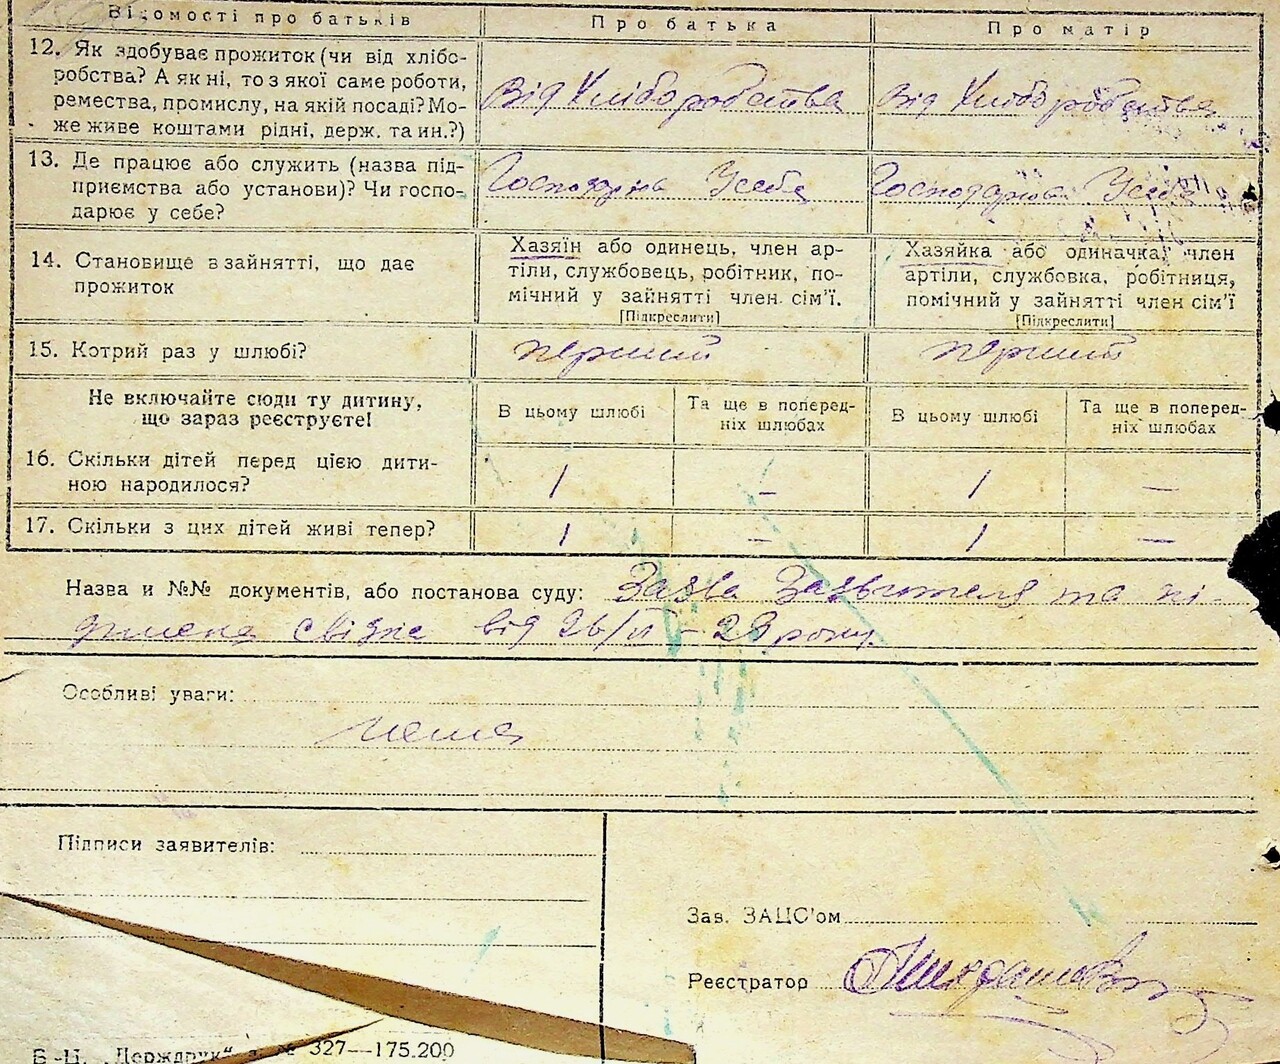 Відомості про батьків
Про батька
Про матір
12. Як здобуває прожиток (чи від хлібо-
робства? А як ні, то з якої саме роботи,
ремества, промислу, на якій посаді? Мо-
же живе коштами рідні, держ. та ин.?)
Від хліборобства
Від хліборобства
13. Де працює або служить (назва під-
приємства або установи)? Чи госпо-
дарює у себе?
Усебе
Усебе
14. Становище в зайнятті, що дає
прожиток
Хазяїн або одинець, член ар-
тіли, службовець, робітник, по-
мічний у зайнятті член. сім'ї.
[Підкреслити]
Хазяйка або одиначка, член
артіли, службовка, робітниця,
помічний у зайнятті член сім'ї
[Підкреслити]
15. Котрий раз у шлюбі?
перший
перший
Не включайте сюди ту дитину,
що зараз реєструєте!
В цьому шлюбі
Та ще в поперед-
ніх шлюбах
В цьому шлюбі
Та ще в поперед-
ніх шлюбах
16. Скільки дітей перед цією дити-
ною народилося?
1 — 1 —
17. Скільки з цих дітей живі тепер?
1 — 1 —
Назва и №№ документів, або постанова суду: Заява Заявителя та
від 26/VI – 29 року.
Особливі уваги:
нема
Підписи заявителів:
Зав. ЗАЦС'ом
Реєстратор
"Держдрук" з. № 327—175.200